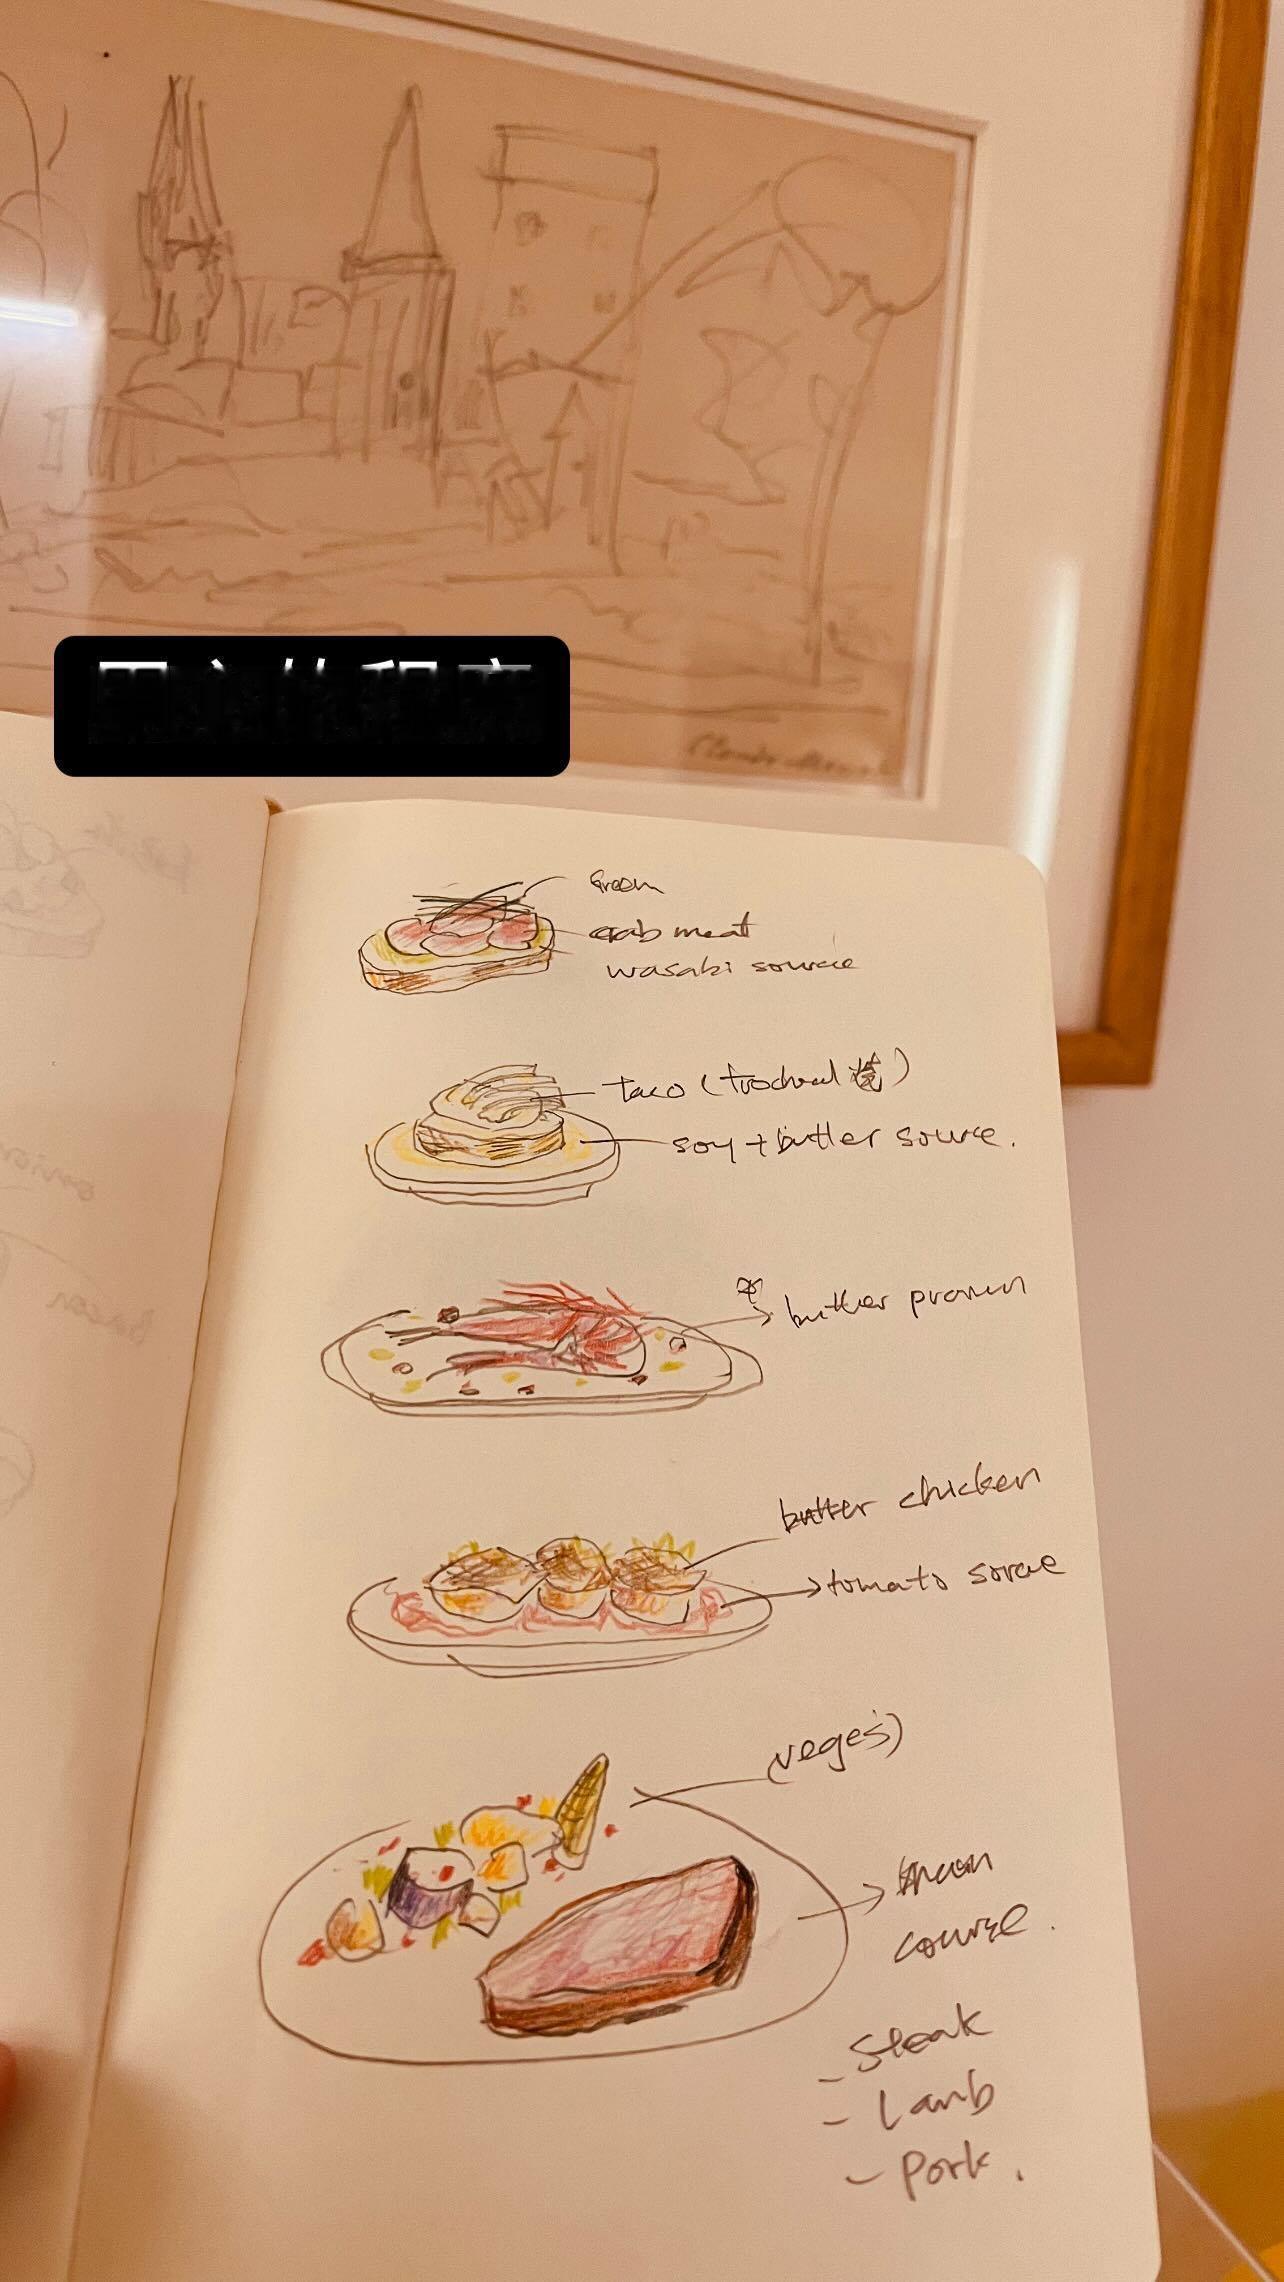 Green
crab meat
wasabi source
taco (
soy + butter source.
butter prawn
butter chicken
tomato source
(veges)
main
course.
- Steak
- Lamb
- Pork.